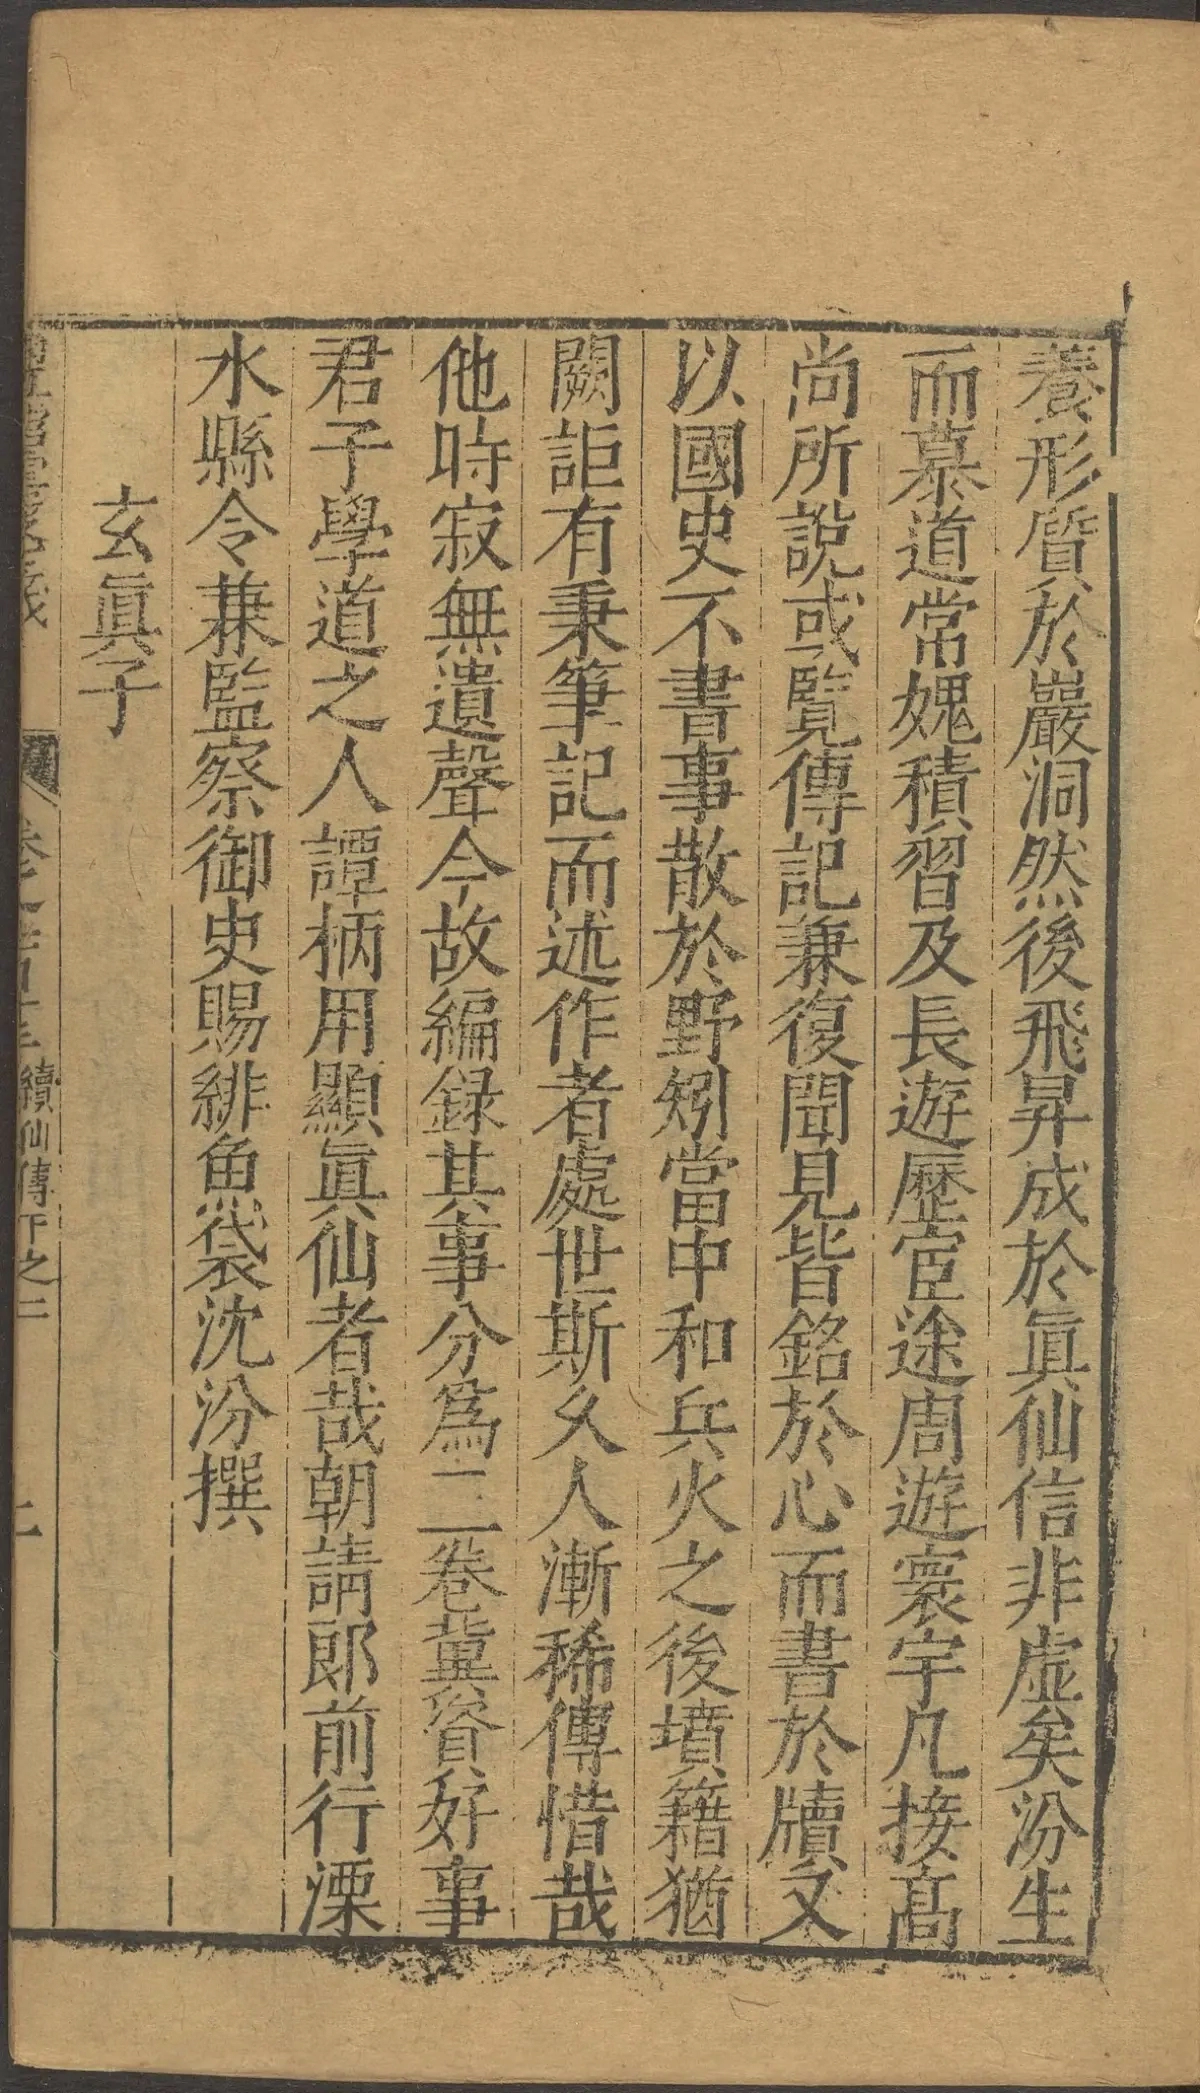 養形質於巖洞然後飛昇成於眞仙信非虛矣汾生
而慕道常媿積習及長遊歷宦途周遊寰宇凡接髙
尚所說或覽傳記兼復聞見皆銘於心而書於牘又
以國史不書事散於野矧當中和兵火之後墳籍猶
闕詎有秉筆記而述作者處世斯久人漸稀傳惜哉
他時寂無遺聲今故編録其事分爲二卷兾資好事
君子學道之人譚柄用顯眞仙者哉朝請郎前行溧
水縣令兼監察御史賜緋魚袋沈汾撰
玄眞子
續仙傳下之二
二